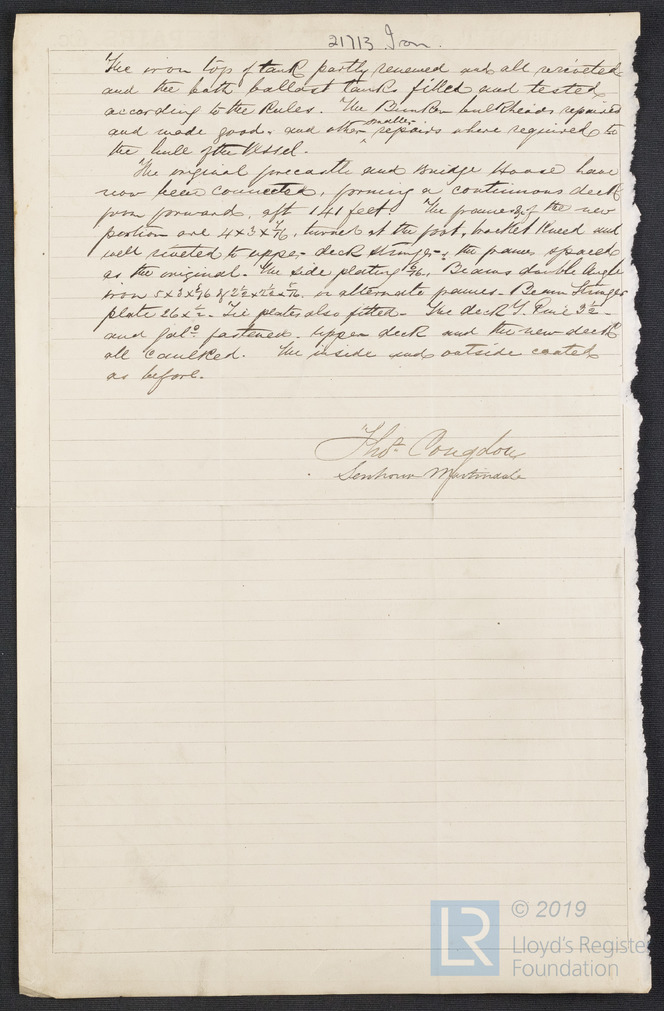 21713 Iron.
The iron top of tank partly renewed and all reriveted
and the both ballast tanks filled and tested
according to the Rules. The Bunker bulkheads repaired
and made good. and other smaller repairs where required to
the hull of the Vessel.
The original forecastle and Bridge House have
now been connected, forming a continuous deck
from forward, aft 141 feet. The frames of the new
portion are 4 x 3 x 7/16, turned at the foot, bracket kneed and
well riveted to upper deck stringer, the frames spaced
as the original. The side plating 6/16. Beams double angle
iron 5 x 3 x 6/16 & 2½ x 2½ x 5/16 on alternate frames. Beam Stringer
plate 26 x ½. Tie plates also fitted. The deck Y. Pine 3½
and galᵛ fastened. upper deck and the new deck
all caulked. The inside and outside coated
as before.
Thoˢ Congdon
Senhouse Martindale
© 2019
LR
Lloyd's Register
Foundation